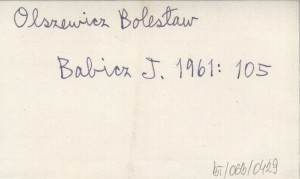 Olszewicz Bolesław
Babicz J. 1961: 105
BT/066/0429